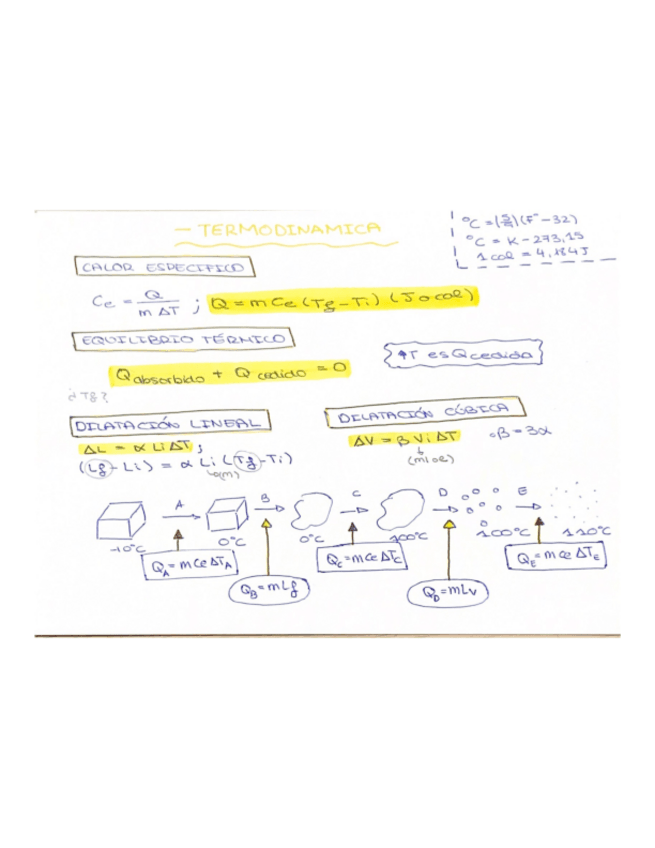 - TERMODINAMICA
°C = (5/9)(F - 32)
°C = K - 273,15
1 cal = 4,184J
CALOR ESPECÍFICO
Ce = Q / m ΔT ; Q = m Ce (Tf - Ti) (J o cal)
EQUILIBRIO TÉRMICO
Qabsorbido + Q cedido = 0
↑T es Q cedida
¿Tf?
DILATACIÓN LINEAL
ΔL = α Li ΔT ;
(Lf - Li) = α Li (Tf - Ti)
(m)
DILATACIÓN CÚBICA
ΔV = β Vi ΔT
β = 3α
A B C D E
-10°C 0°C 0°C 100°C 100°C 110°C
QA = m Ce ΔTA
QC = m Ce ΔTC
QE = m Ce ΔTE
QB = mLf
QD = mLv